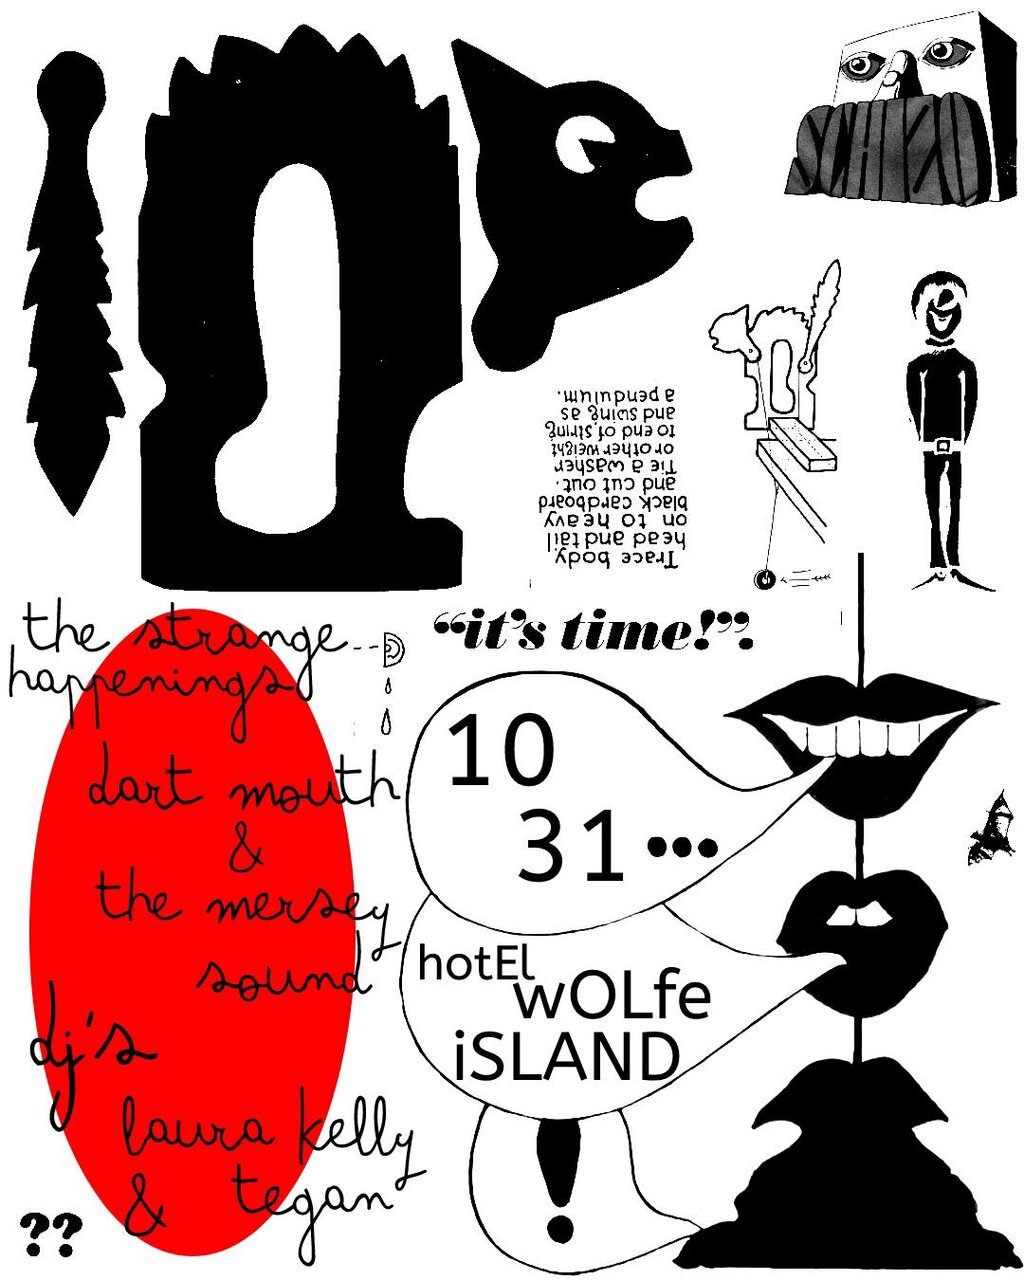 SCHIZO
Trace body,
head and tail
on to heavy
black cardboard
and cut out.
Tie a washer
or other weight
to end of string,
and swing as
a pendulum.
the strange
happenings
dart mouth
&
the mersey
sound
dj's
laura kelly
& tegan
??
“it's time!”.
10
31...
hotEl
wOLfe
iSLAND
!